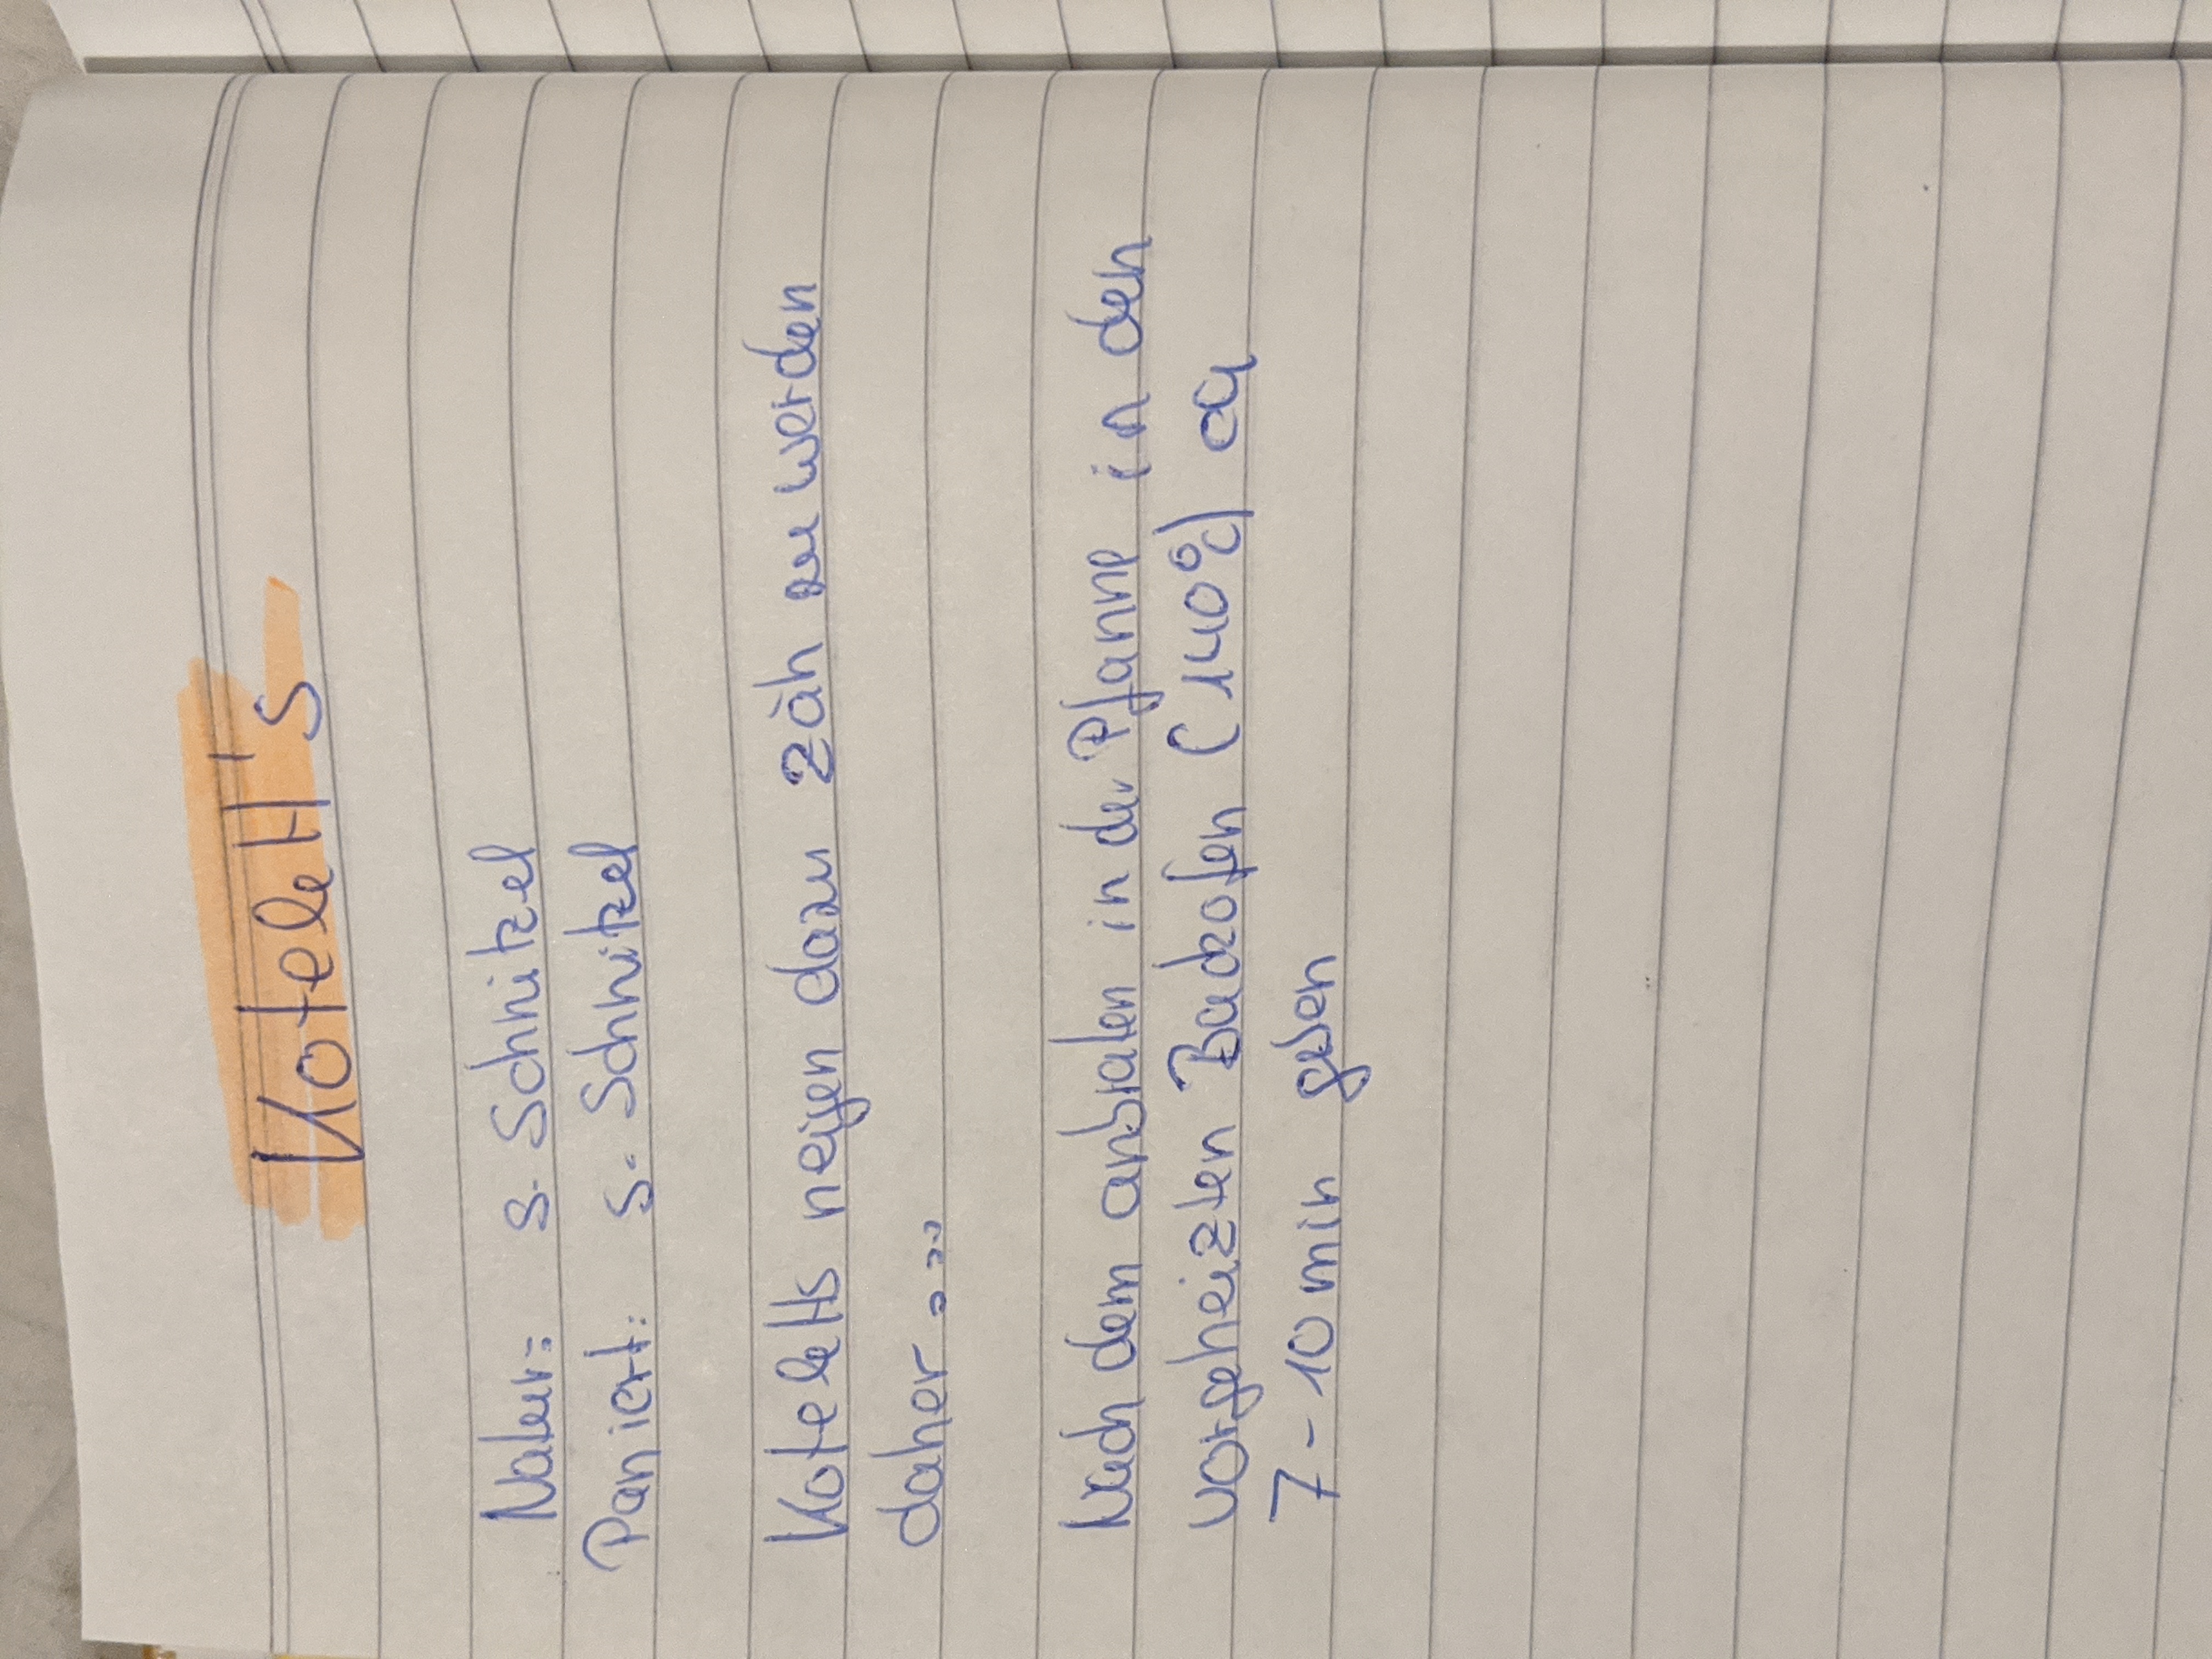 Kotelett's
Natur: s. Schnitzel
Paniert: s. Schnitzel
Koteletts neigen dazu zäh zu werden
daher....
Nach dem anbraten in der Pfanne in den
vorgeheizten Backofen (140°C) ca
7-10 min geben